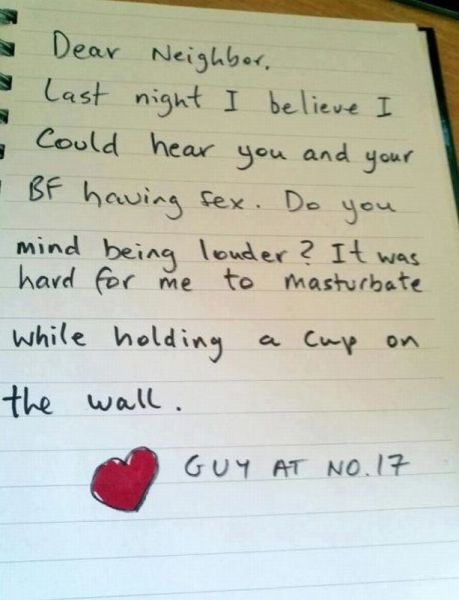 Dear Neighbor.
Last night I believe I
Could hear you and your
BF having sex. Do you
mind being louder? It was
hard for me to masturbate
while holding a cup on
the wall.
GUY AT NO.17